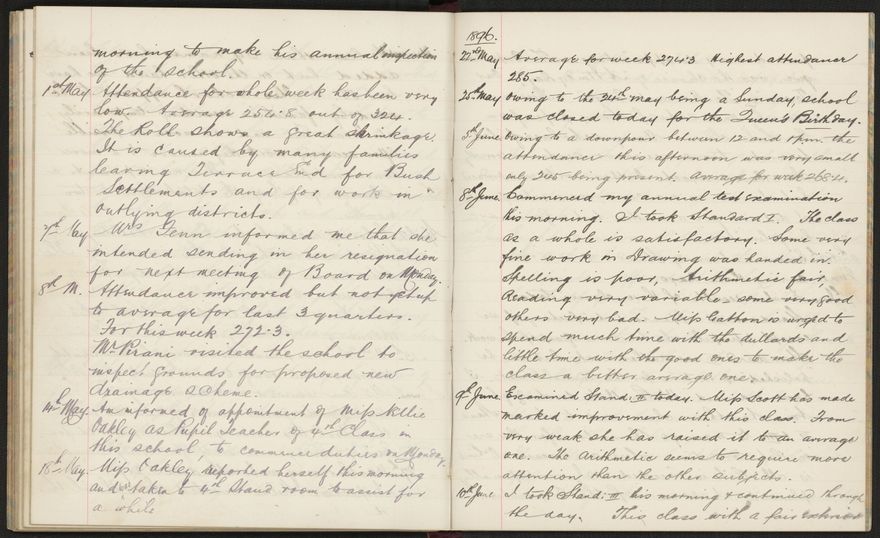 morning to make his annual inspection
of the school.
1st May. Attendance for whole week has been very
low. Average 254.8 out of 324.
The Roll shows a great shrinkage.
It is caused by many families
leaving Terrace End for Bush
Settlements and for work in
outlying districts.
7th May Mrs Fenn informed me that she
intended sending in her resignation
for next meeting of Board on Monday.
8th M. Attendance improved but not yet up
to average for last 3 quarters.
For this week 272.3.
Mr Pirani visited the school to
inspect grounds for proposed new
drainage scheme.
14th May. Am informed of appointment of Miss Nellie
Oakley as Pupil Teacher of 4th Class in
this school, to commence duties on Monday.
18th May. Miss Oakley reported herself this morning
and taken to 4th Stand room to assist for
a while
1896.
22nd May Average for week 274.3 Highest attendance
285.
25th May Owing to the 24th May being a Sunday, school
was closed today for the Queen's Birthday.
5th June Owing to a downpour between 12 and 1 p.m. the
attendance this afternoon was very small
only 205 being present. Average for week 268.4.
8th June. Commenced my annual test examination
this morning. I took Standard I. The class
as a whole is satisfactory. Some very
fine work in Drawing was handed in.
Spelling is poor, Arithmetic fair,
Reading very variable - some very good
others very bad. Miss Catton is urged to
spend much time with the dullards and
little time with the good ones to make the
class a better average one.
9th June Examined Stand. II today. Miss Scott has made
marked improvement with this class. From
very weak she has raised it to an average
one. The Arithmetic seems to require more
attention than the other subjects.
10th June I took Stand: III this morning & continued through
the day. This class with a fair